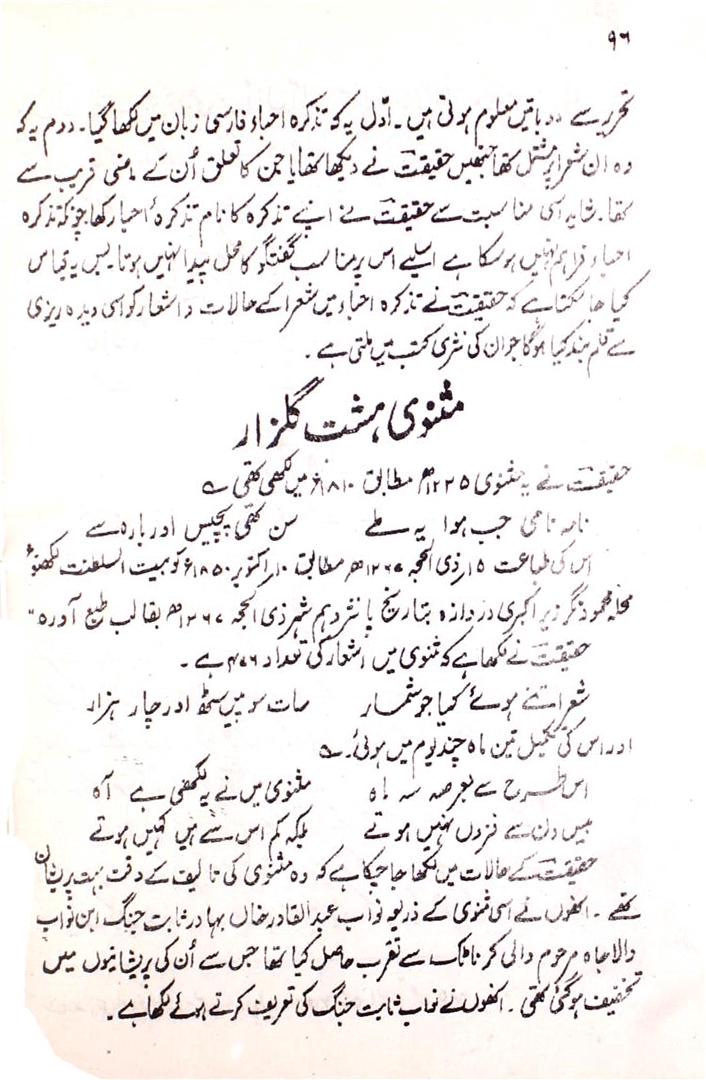 ۹۶
تحریر سے دو باتیں معلوم ہوتی ہیں۔ اوّل یہ کہ تذکرہ احباء فارسی زبان میں لکھا گیا۔ دوم یہ کہ
وہ ان شعرا پر مشتمل تھا جنھیں حقیقت نے دیکھا تھا یا جن کا تعلق اُن کے ماضی قریب سے
تھا۔ شاید اسی مناسبت سے حقیقت نے اپنے تذکرہ کا نام تذکرۂ احبار کھا چونکہ تذکرہ
احباء فراہم نہیں ہو سکا ہے اسلیے اس پر مناسب گفتگو کا محل پیدا نہیں ہوتا۔ بس یہ قیاس
کیا جا سکتا ہے کہ حقیقت نے تذکرہ احباء میں شعرا کے حالات و اشعار کو اسی دیدہ ریزی
سے قلم بند کیا ہوگا جو ان کی نثری کتب میں ملتی ہے۔
مثنوی ہشت گلزار
حقیقت نے یہ مثنوی ۱۲۲۵ھ مطابق ۱۸۱۰ء میں لکھی تھی ؎
نامہ نامی جب ہوا یہ طے سن تھی پچیس اور بارہ سے
اس کی طباعت ۱۵؍ ذی الحجہ ۱۲۶۷ھ مطابق ۱۰؍ اکتوبر ۱۸۵۰ء کو بیت السلطنت لکھنؤ
محلہ محمود نگر زیر اکبری دروازہ بتاریخ پانزدہم شہر ذی الحجہ ۱۲۶۷ھ بقالب طبع آوردہ"
حقیقت نے لکھا ہے کہ مثنوی میں اشعار کی تعداد ہے۔
شعر اتنے ہوئے کیا جو شمار سات سو بیسٹھ اور چار ہزار
اور اس کی تکمیل تین ماہ چند یوم میں ہوئی۔ ؎
اس طرح سے بعرصہ سہ ماہ مثنوی میں نے یہ لکھی ہے آہ
بیس دن سے فزوں نہیں ہوتے بلکہ کم اس سے ہیں کہیں ہوتے
حقیقت کے حالات میں لکھا جا چکا ہے کہ وہ مثنوی کی تالیف کے وقت بہت پریشان
تھے۔ انھوں نے اسی مثنوی کے ذریعہ نواب عبد القادر خاں بہادر ثابت جنگ ابن نواب
والا جاہ مرحوم والی کرناٹک سے تقرب حاصل کیا تھا جس سے اُن کی پریشانیوں میں
تخفیف ہو گئی تھی۔ انھوں نے نواب ثابت جنگ کی تعریف کرتے ہوئے لکھا ہے۔